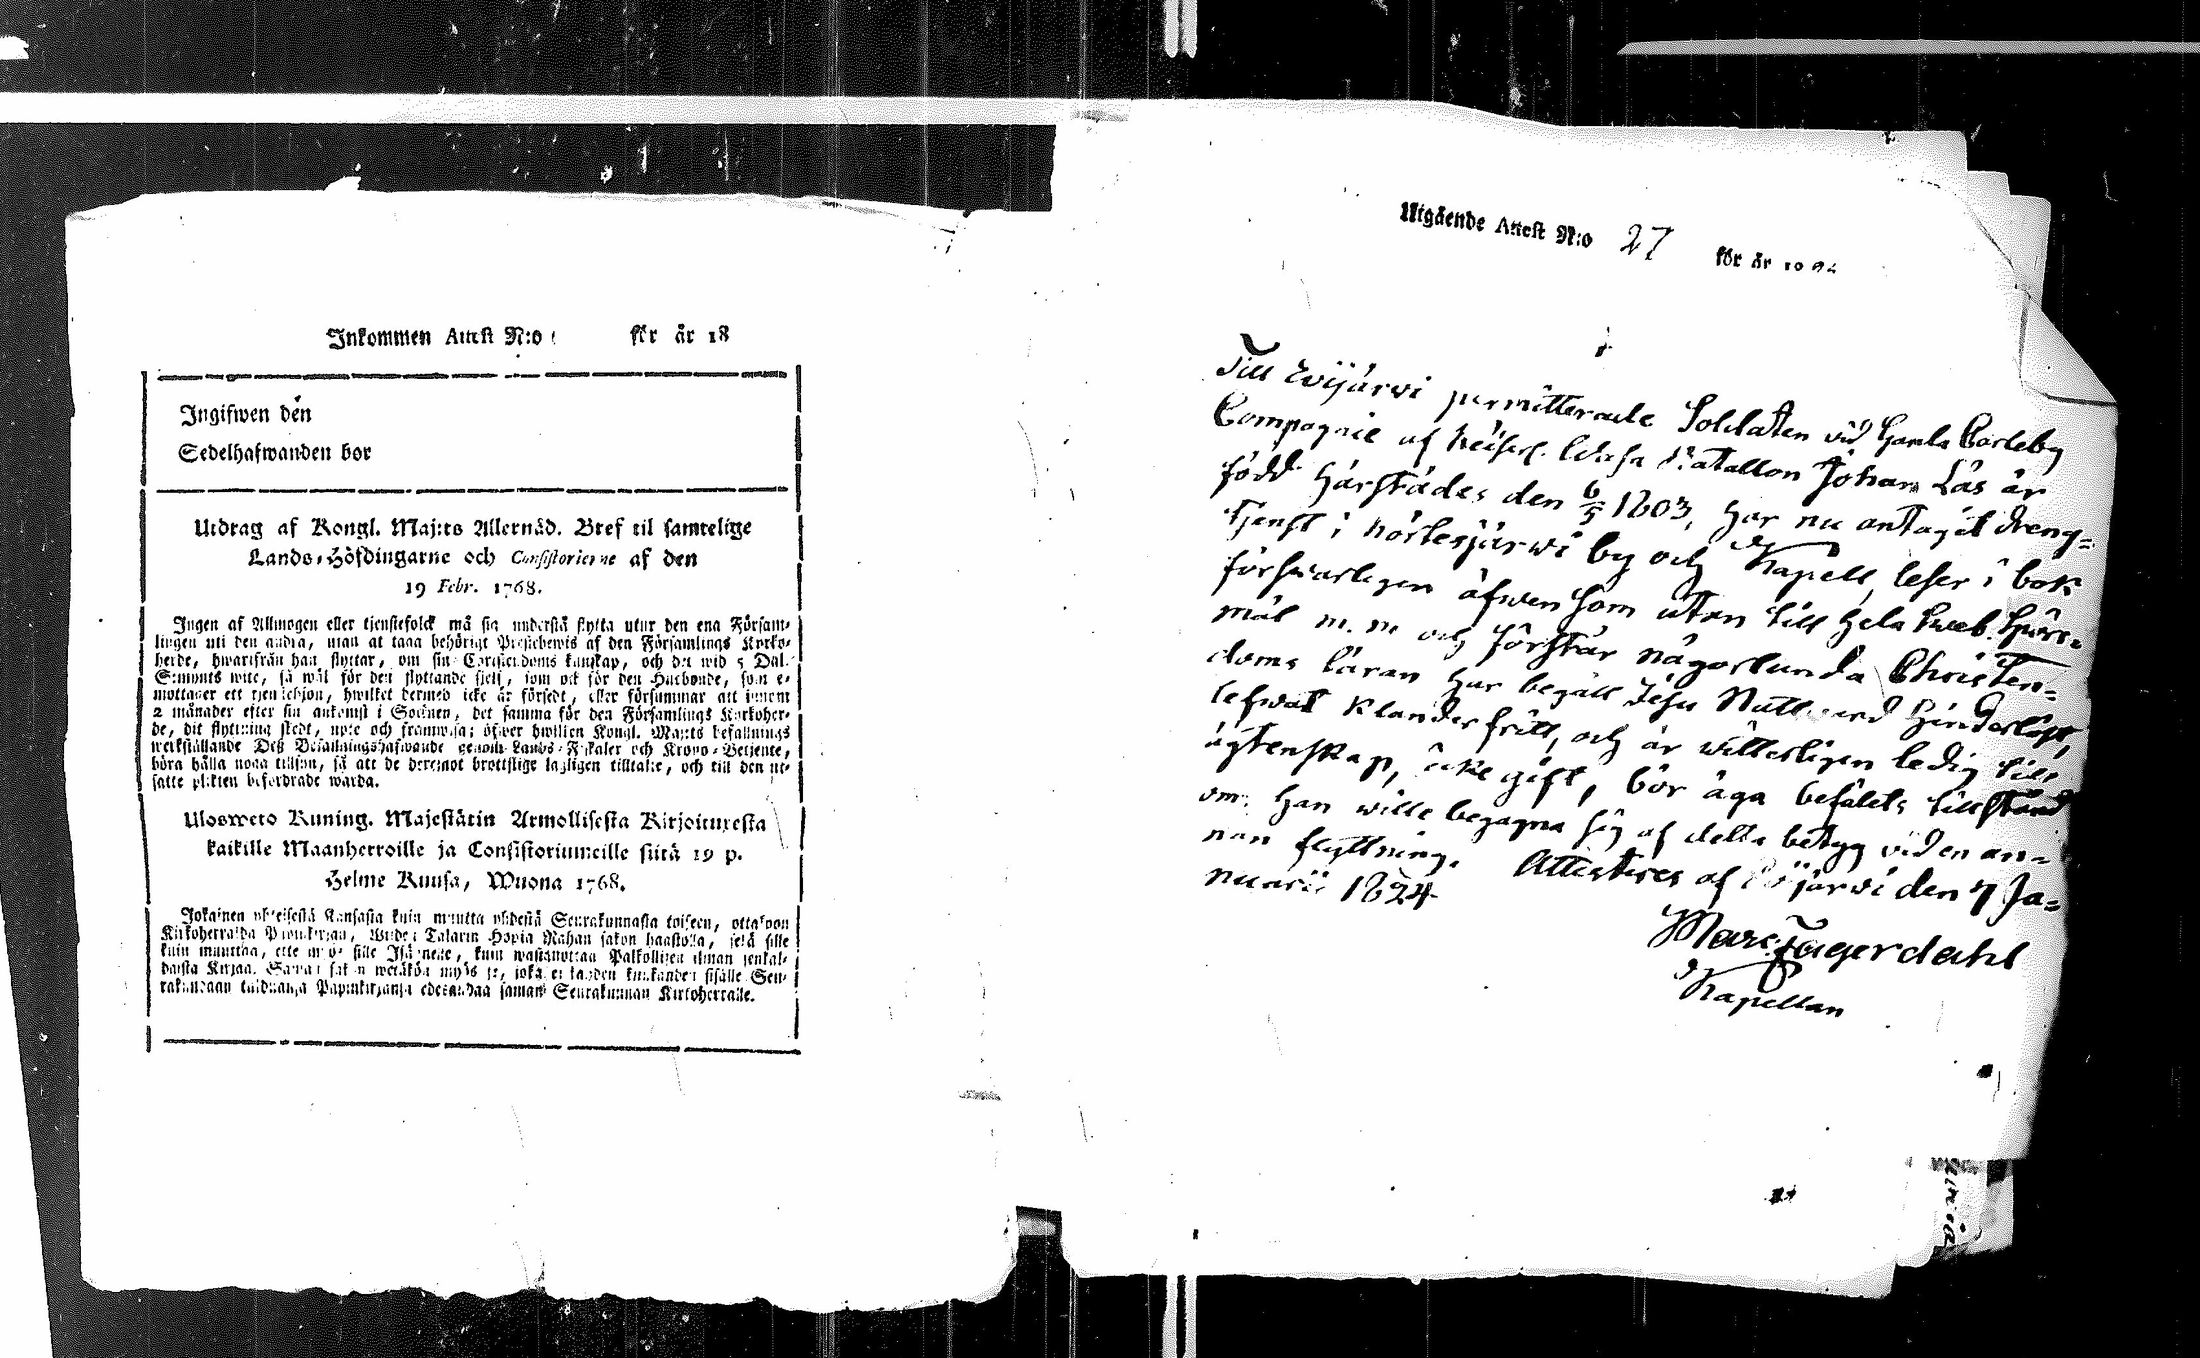 Inkommen Attest N:o för år 18
Ingifwen den
Sedelhafwanden bor
Utdrag af Kongl. Maj:ts Allernåd. Bref til samtelige
Lands-Höfdingarne och Consistorierne af den
19 Febr. 1768.
Ingen af Allmogen eller tjenstefolck må sig understå flytta utur den ena Försam-
lingen uti den andra, utan at taga behörigt Prestebewis af den Församlings Kyrko-
herde, hwarifrån han flyttar, om sin Christendoms kunskap, och det wid 5 Dal.
S:mynts wite, så wäl för den flyttande sielf, som ock för den Husbonde, som e-
mottager ett tjenstehjon, hwilket dermed icke är försedt, eller försummar att innom
2 månader efter sin ankomst i Socknen, det samma för den Församlings Kyrkoher-
de, dit flyttning skedt, upte och framwisa; öfwer hwilken Kongl. Maj:ts befallnings
werkställande Deß Befallningshafwande genom Lands-Fiskaler och Krono-Betjente,
böra hålla noga tillsyn, så att de deremot brottslige lagligen tilltale, och till den ut-
satte plikten befordrade warda.
Ulosweto Kuning. Majestätin Armollisesta Kirjoituxesta
kaikille Maanherroille ja Consistoriumeille siitä 19 p.
Helme Kuusa, Wuona 1768.
Jokainen yhteisestä Kansasta kuin muutta yhdestä Seurakunnasta toiseen, ottakoon
Kirkoherralda Papinkirjan, Wijden Talarin Hopia Rahan sakon haastolla, sekä sille
kuin muuttaa, ette myös sille Isännelle, kuin wastanottaa Palkollisen ilman senkal-
daista Kirjaa. Saman sakon wetäkön myös se, joka ei kahden kuukauden sisälle Seu-
rakundaan tulduansa Papinkirjansa edesandaa saman Seurakunnan Kirkoherralle.
Utgående Attest N:o 27 för år 1824
Till Ewijärwi permitterade Soldaten vid Gamla Carleby
Compagnie af Keiserl. Wasa Batallon Johan Lås är
född härstädes den 6/5 1803, har nu antagit dreng=
tjenst i Kortesjärwi by och Kapell, leser i bok
försvarligen äfwen som utan till hela Sweb. Spörs-
mål m. m och förstår någorlunda Christen=
doms läran har begått Jesu Nattward hinderlöst,
lefwat klanderfritt, och är witterligen ledig till
ägtenskap, icke gift, bör äga befälets tillstånd
om han wille begagna sig af detta betyg vid en an=
nan flyttning. Attesteres af Ewijärwi den 7 Ja=
nuarii 1824
Marc: Fagerdahl
Kapellan